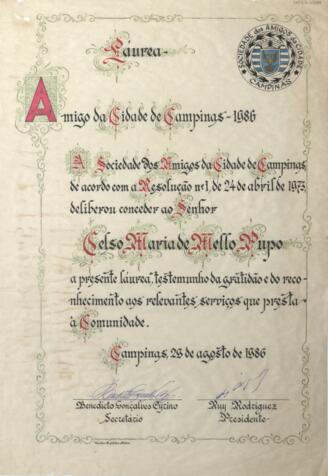 SOCIEDADE dos AMIGOS da CIDADE
CAMPINAS
Laurea-
Amigo da Cidade de Campinas-1986
A Sociedade dos Amigos da Cidade de Campinas,
de acordo com a Resolução nº1, de 24 de abril de 1973,
deliberou conceder ao Senhor
Celso Maria de Mello Pupo
a presente láurea, testemunho da gratidão e do reco-
nhecimento aos relevantes serviços que presta
à Comunidade.
Campinas, 29 de agosto de 1986
Benedicto Gonçalves Cyrino
Secretário
Ruy Rodriguez
Presidente-